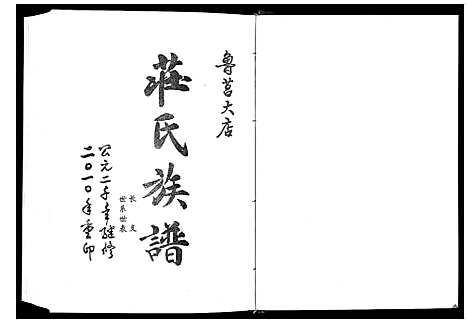 魯莒大店
莊氏族譜
長支
世系世表
公元二千年續修
二〇一〇年重印